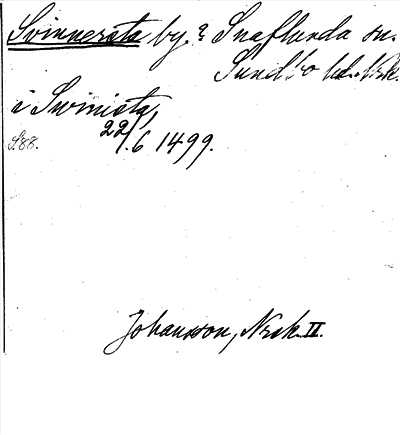 Svinnersta by. i Snaflunda sn.
Sundbo hd. Nrk.
i Swinista,
22/6 1499.
S88.
Johansson, Nrk. II.